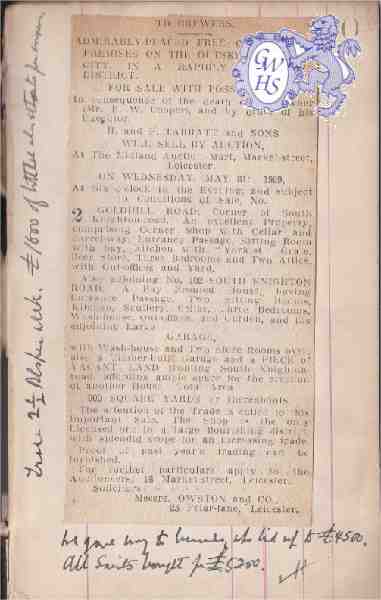 TO BREWERS.
ADMIRABLY-PLACED FREE
PREMISES ON THE OUTSK
CITY, IN A RAPIDLY
DISTRICT.
FOR SALE WITH POSS
In consequence of the death
(Mr. F. W. Coopers, and by order of his
Executor.
H. and F. TARRATT and SONS
WILL SELL BY AUCTION,
At The Midland Auction Mart, Market-street,
Leicester,
ON WEDNESDAY, MAY 1929,
At Six o'clock in the Evening, and subject
to Conditions of Sale, No.
2 GOLDHILL ROAD, Corner of South
Knighton-road. An excellent Property,
comprising Corner Shop with Cellar and
Entrance Passage, Sitting Room
with bay, Kitchen with Yorkist Grate,
Beer store, Three Bedrooms and Two Attics,
with Out-offices and Yard.
Also adjoining No. 102 SOUTH KNIGHTON
ROAD. A Bay Fronted House, having
Entrance Passage, Two Sitting Rooms,
Kitchen, Scullery, Cellar, Three Bedrooms,
Wash-house, Out-offices, and Garden, and the
adjoining Large
GARAGE,
with Wash-house and Two Store Rooms over,
also a Timber-built Garage and a PIECE of
VACANT LAND fronting South Knighton-
road, affording ample space for the erection
of another House. Total Area
SQUARE YARDS or thereabouts.
The attention of the Trade is called to this
Important Sale. The Shop is the only
Licensed one in a large flourishing district
with splendid scope for an increasing trade.
Proof of past year's trading can be
furnished.
For further particulars apply to the
Auctioneers, 16 Market-street, Leicester.
Solicitors:
Messrs. OWSTON and CO.,
23 Friar-lane, Leicester.
we gave way to who bid up to £4500.
All Saints bought for £5200.
GWHS